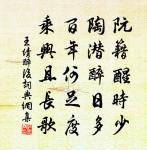 阮籍醒時少
陶潛醉日多
百年何足度
乘興且長歌
王績醉後詞典網集